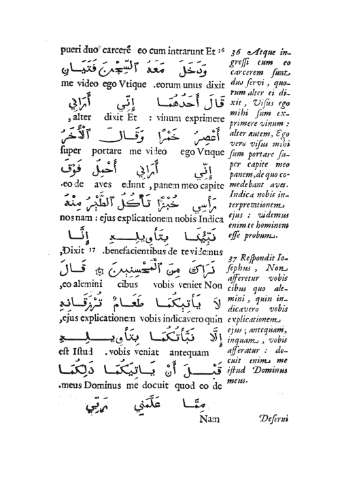 pueri duo carcerē eo cum intrarunt Et 36
وَدَخَلَ مَعَهُ ٱلسِّجْنَ فَتَيَانِ
me video ego Vtique .eorum unus dixit
قَالَ أَحَدُهُمَا إِنِّي أَرَانِي
,alter dixit Et : vinum exprimere
أَعْصِرُ خَمْرًا وَقَالَ ٱلْآخَرُ
super portare me video ego Vtique
إِنِّي أَرَانِي أَحْمِلُ فَوْقَ
.eo de aves edunt , panem meo capite
رَأْسِي خُبْزًا تَأْكُلُ ٱلطَّيْرُ مِنْهُ
nos nam : ejus explicationem nobis Indica
نَبِّئْنَا بِتَأْوِيلِهِ إِنَّا
,Dixit 37 .beneficientibus de te videmus
نَرَاكَ مِنَ ٱلْمُحْسِنِينَ ۞ قَالَ
,eo alemini cibus vobis veniet Non
لَا يَأْتِيكُمَا طَعَامٌ تُرْزَقَانِهِ
,ejus explicationem vobis indicavero quin
إِلَّا نَبَّأْتُكُمَا بِتَأْوِيلِهِ
est Istud .vobis veniat antequam
قَبْلَ أَنْ يَأْتِيَكُمَا ذَلِكُمَا
.meus Dominus me docuit quod eo de
مِمَّا عَلَّمَنِي رَبِّي
Nam
36 Atque in-
gressi cum eo
carcerem sunt
duo servi , quo-
rum alter ei di-
xit , Visus ego
mihi sum ex-
primere vinum :
alter autem, Ego
vero visus mihi
sum portare su-
per capite meo
panem, de quo co-
medebant aves.
Indica nobis in-
terpretationem
ejus : videmus
enim te hominem
esse probum.
37 Respondit Jo-
sephus , Non
afferetur vobis
cibus quo ale-
mini , quin in-
dicavero vobis
explicationem
ejus ; antequam,
inquam , vobis
afferatur : do-
cuit enim me
istud Dominus
meus.
Deserui